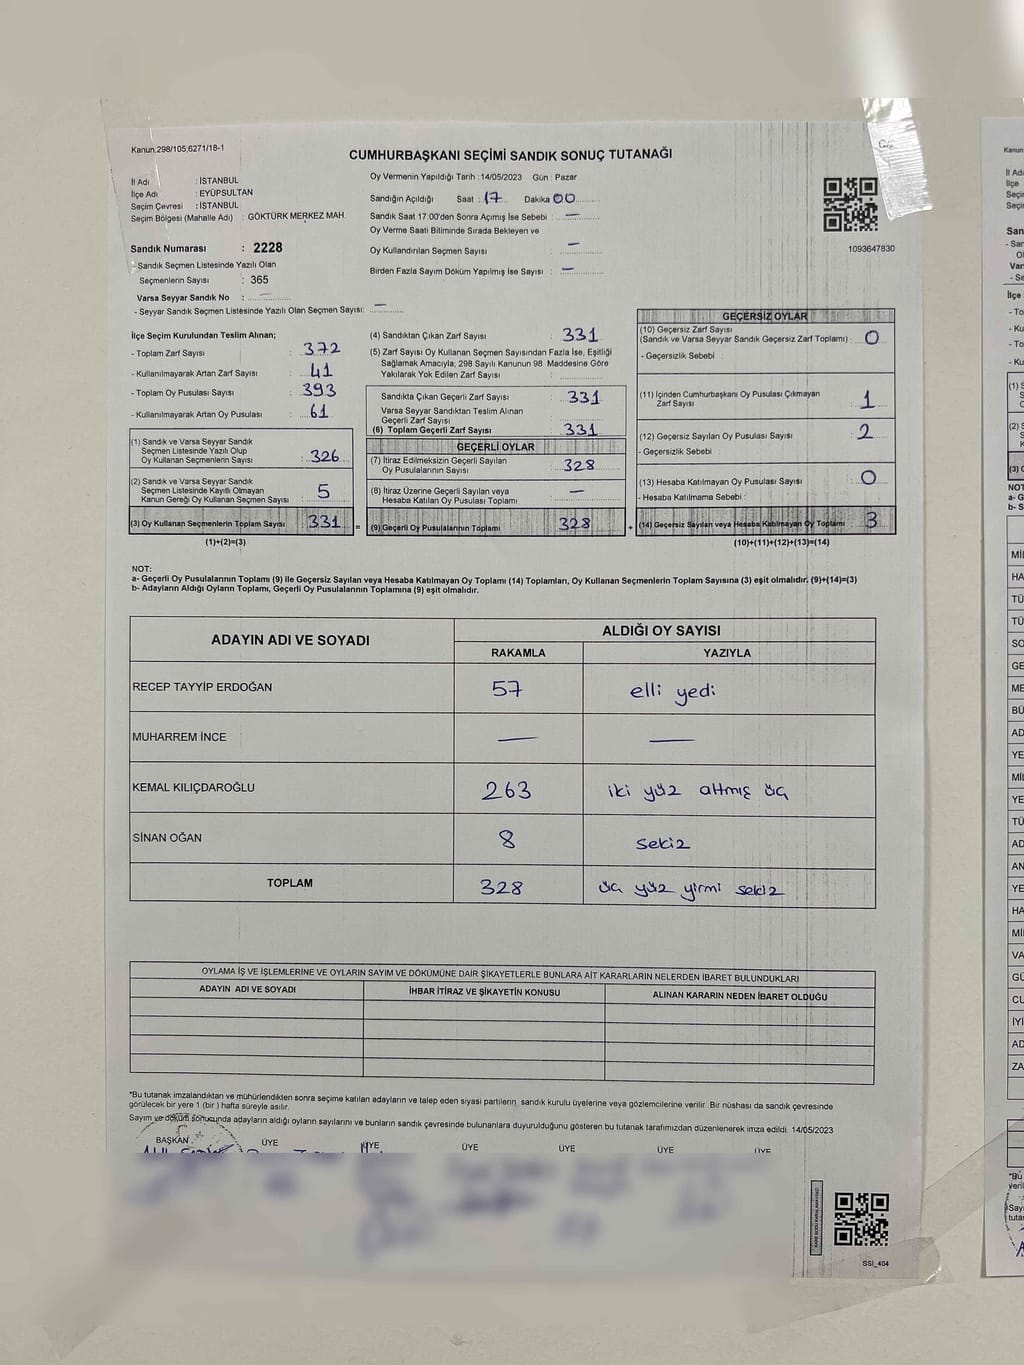 Kanun 298/105,6271/18-1
CUMHURBAŞKANI SEÇİMİ SANDIK SONUÇ TUTANAĞI
İl Adı : İSTANBUL
İlçe Adı : EYÜPSULTAN
Seçim Çevresi : İSTANBUL
Seçim Bölgesi (Mahalle Adı) : GÖKTÜRK MERKEZ MAH.
Sandık Numarası : 2228
- Sandık Seçmen Listesinde Yazılı Olan
Seçmenlerin Sayısı : 365
Varsa Seyyar Sandık No : —
- Seyyar Sandık Seçmen Listesinde Yazılı Olan Seçmen Sayısı: —
Oy Vermenin Yapıldığı Tarih :14/05/2023 Gün : Pazar
Sandığın Açıldığı Saat : 17 Dakika 00
Sandık Saat 17:00'den Sonra Açımış İse Sebebi : —
Oy Verme Saati Bitiminde Sırada Bekleyen ve
Oy Kullandırılan Seçmen Sayısı : —
Birden Fazla Sayım Döküm Yapılmış İse Sayısı : —
1093647630
İlçe Seçim Kurulundan Teslim Alınan;
- Toplam Zarf Sayısı : 372
- Kullanılmayarak Artan Zarf Sayısı : 41
- Toplam Oy Pusulası Sayısı : 393
- Kullanılmayarak Artan Oy Pusulası : 61
(1) Sandık ve Varsa Seyyar Sandık
Seçmen Listesinde Yazılı Olup
Oy Kullanan Seçmenlerin Sayısı : 326
(2) Sandık ve Varsa Seyyar Sandık
Seçmen Listesinde Kayıtlı Olmayan
Kanun Gereği Oy Kullanan Seçmen Sayısı : 5
(3) Oy Kullanan Seçmenlerin Toplam Sayısı : 331 =
(1)+(2)=(3)
(4) Sandıktan Çıkan Zarf Sayısı : 331
(5) Zarf Sayısı Oy Kullanan Seçmen Sayısından Fazla İse, Eşitliği
Sağlamak Amacıyla; 298 Sayılı Kanunun 98. Maddesine Göre
Yakılarak Yok Edilen Zarf Sayısı :
Sandıkta Çıkan Geçerli Zarf Sayısı : 331
Varsa Seyyar Sandıktan Teslim Alınan
Geçerli Zarf Sayısı :
(6) Toplam Geçerli Zarf Sayısı : 331
GEÇERLİ OYLAR
(7) İtiraz Edilmeksizin Geçerli Sayılan
Oy Pusulalarının Sayısı : 328
(8) İtiraz Üzerine Geçerli Sayılan veya
Hesaba Katılan Oy Pusulası Toplamı : —
(9) Geçerli Oy Pusulalarının Toplamı : 328 +
GEÇERSİZ OYLAR
(10) Geçersiz Zarf Sayısı
(Sandık ve Varsa Seyyar Sandık Geçersiz Zarf Toplamı) : 0
- Geçersizlik Sebebi :
(11) İçinden Cumhurbaşkanı Oy Pusulası Çıkmayan
Zarf Sayısı : 1
(12) Geçersiz Sayılan Oy Pusulası Sayısı : 2
- Geçersizlik Sebebi :
(13) Hesaba Katılmayan Oy Pusulası Sayısı : 0
- Hesaba Katılmama Sebebi :
(14) Geçersiz Sayılan veya Hesaba Katılmayan Oy Toplamı : 3
(10)+(11)+(12)+(13)=(14)
NOT:
a- Geçerli Oy Pusulalarının Toplamı (9) ile Geçersiz Sayılan veya Hesaba Katılmayan Oy Toplamı (14) Toplamları, Oy Kullanan Seçmenlerin Toplam Sayısına (3) eşit olmalıdır. (9)+(14)=(3)
b- Adayların Aldığı Oyların Toplamı, Geçerli Oy Pusulalarının Toplamına (9) eşit olmalıdır.
ADAYIN ADI VE SOYADI ALDIĞI OY SAYISI
RAKAMLA YAZIYLA
RECEP TAYYİP ERDOĞAN 57 elli yedi
MUHARREM İNCE — —
KEMAL KILIÇDAROĞLU 263 iki yüz altmış üç
SİNAN OĞAN 8 sekiz
TOPLAM 328 üç yüz yirmi sekiz
OYLAMA İŞ VE İŞLEMLERİNE VE OYLARIN SAYIM VE DÖKÜMÜNE DAİR ŞİKAYETLERLE BUNLARA AİT KARARLARIN NELERDEN İBARET BULUNDUKLARI
ADAYIN ADI VE SOYADI İHBAR İTİRAZ VE ŞİKAYETİN KONUSU ALINAN KARARIN NEDEN İBARET OLDUĞU
*Bu tutanak imzalandıktan ve mühürlendikten sonra seçime katılan adayların ve talep eden siyasi partilerin, sandık kurulu üyelerine veya gözlemcilerine verilir .Bir nüshası da sandık çevresinde
görülecek bir yere 1 (bir ) hafta süreyle asılır.
Sayım ve döküm sonucunda adayların aldığı oyların sayılarını ve bunların sandık çevresinde bulunanlara duyurulduğunu gösteren bu tutanak tarafımızdan düzenlenerek imza edildi. 14/05/2023
BAŞKAN ÜYE ÜYE ÜYE ÜYE ÜYE ÜYE
SSI_404